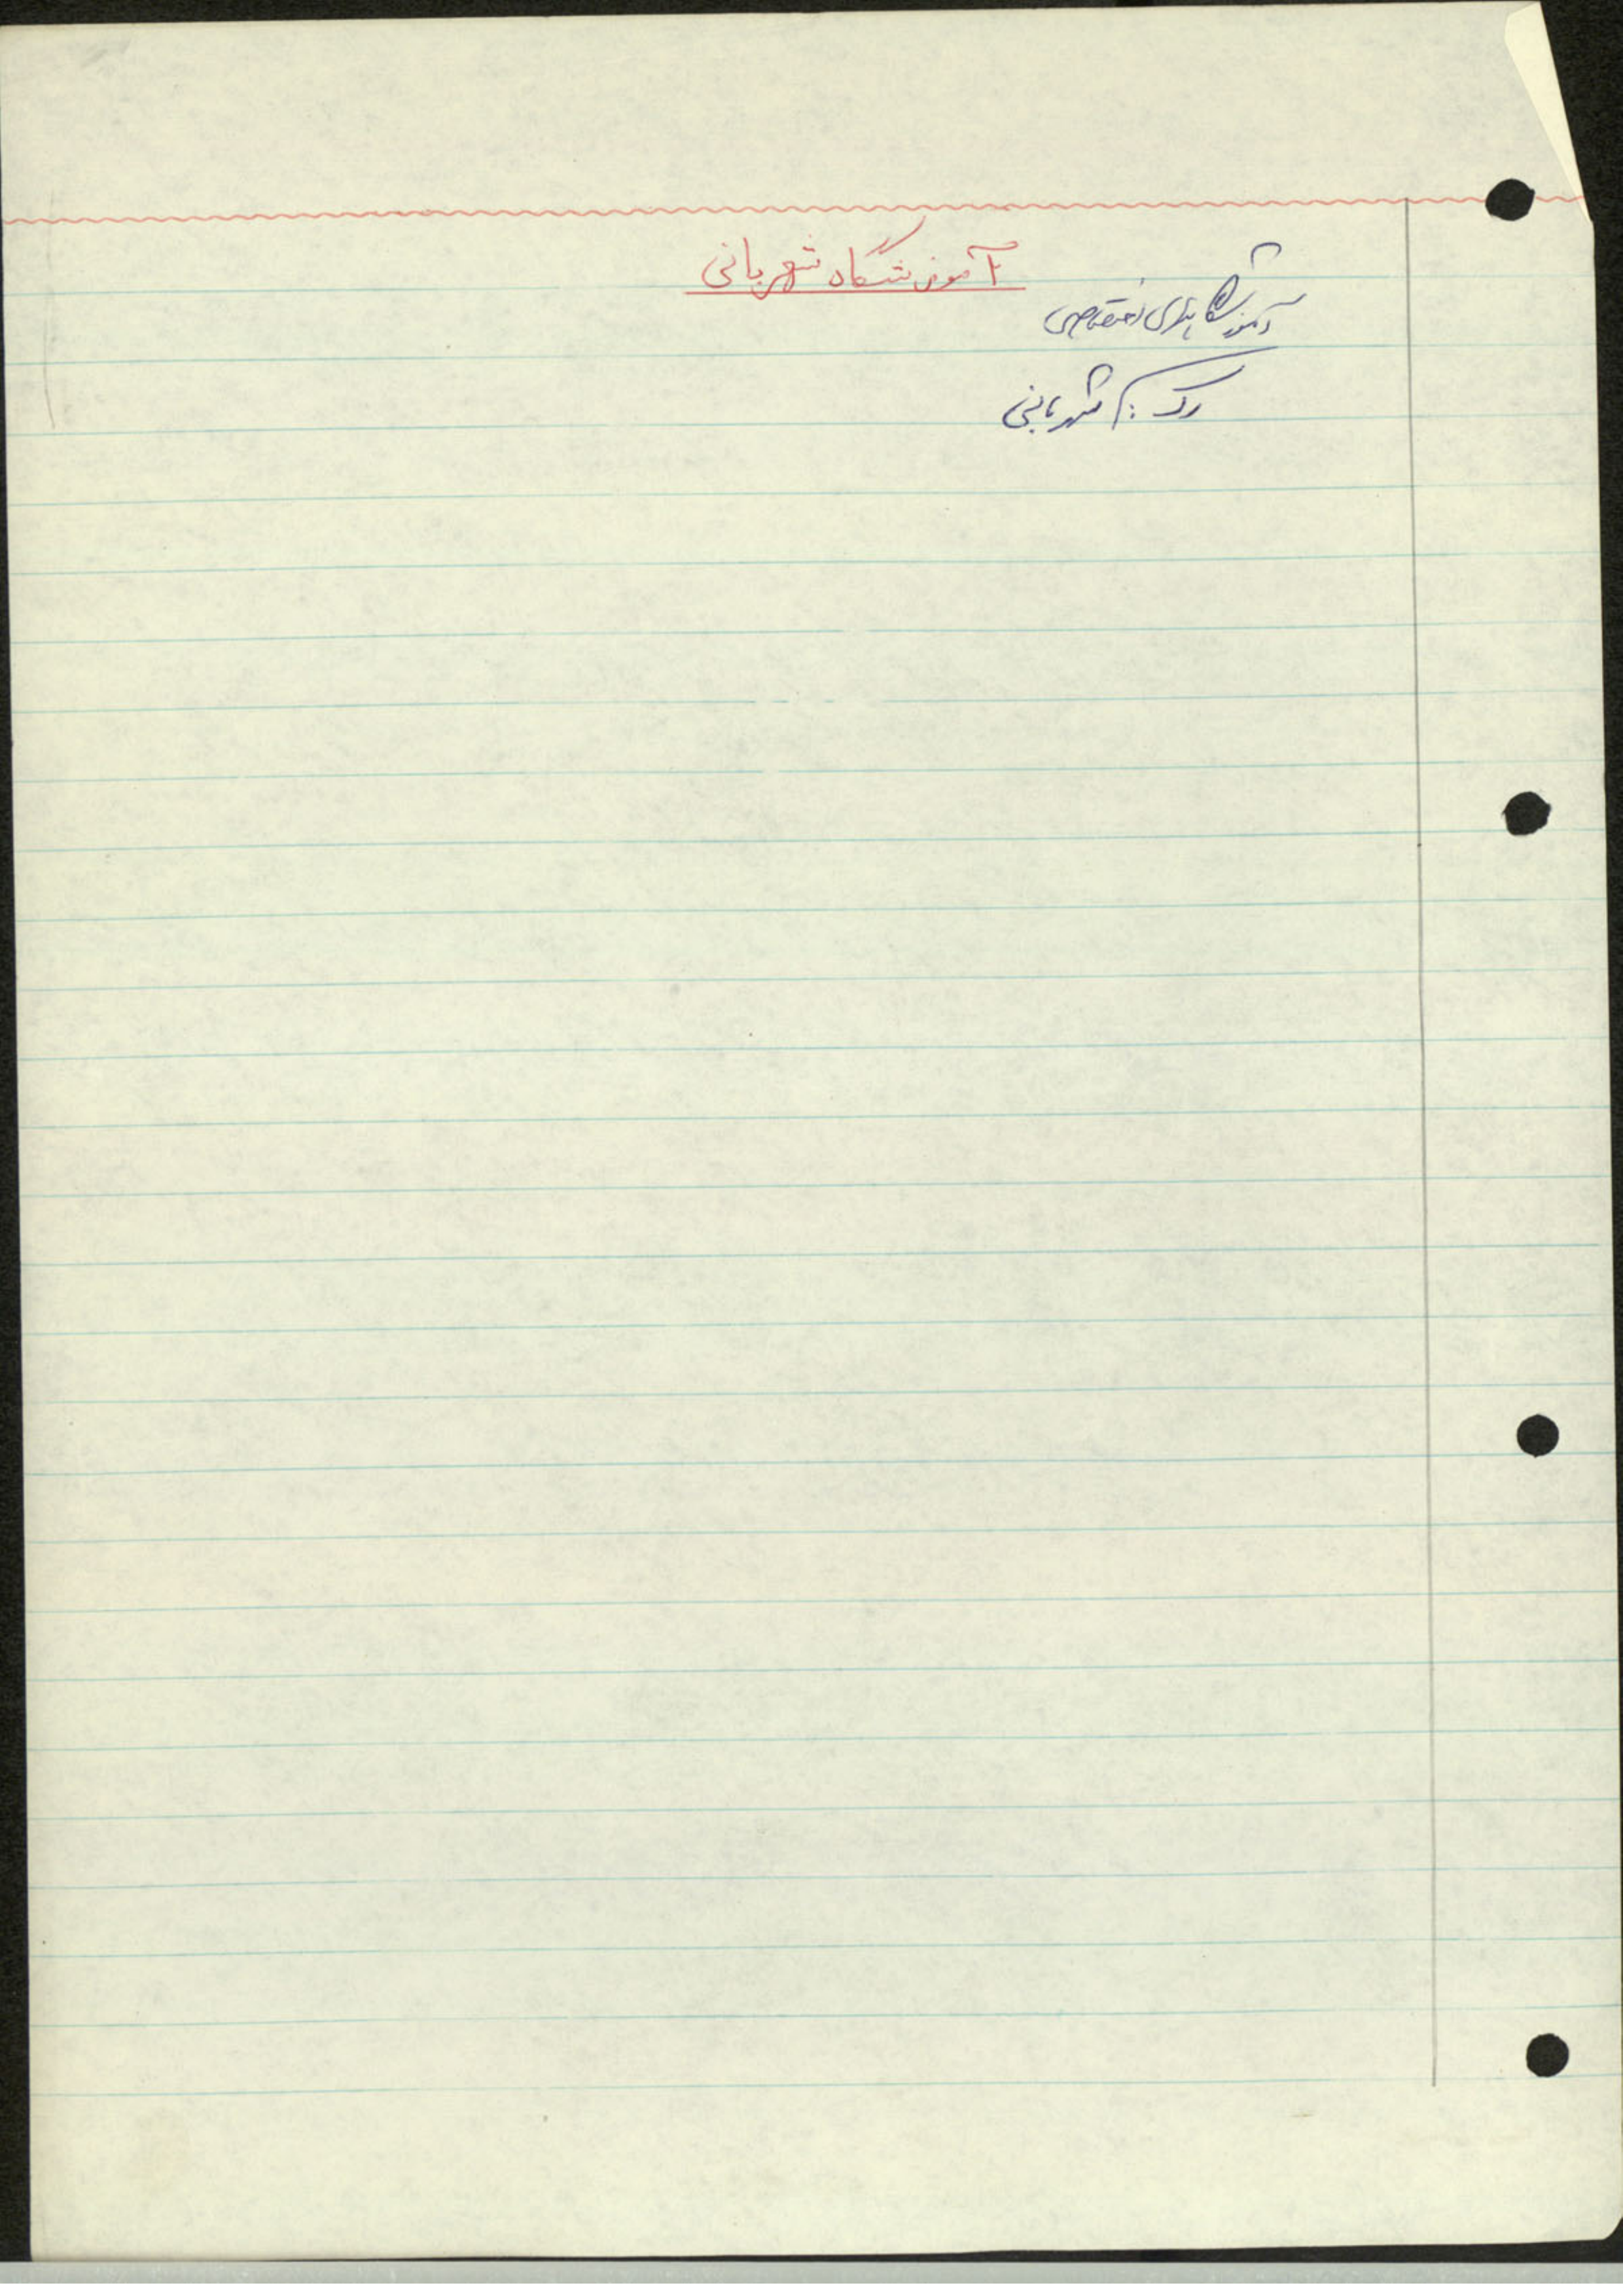 آموزشگاه شهربانی
آموزشگاههای اختصاصی
رک به شهربانی